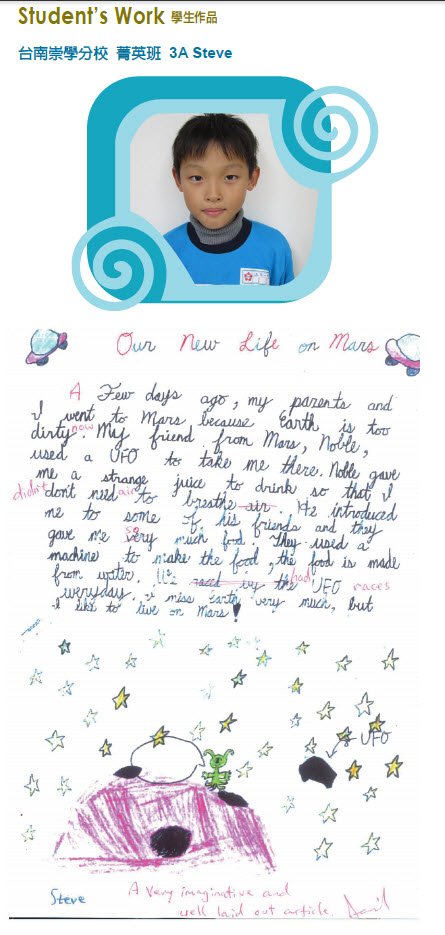 Student's Work 學生作品
台南崇學分校 菁英班 3A Steve
Our New Life on Mars
A Few days ago, my parents and
I went to Mars because Earth is too
dirty now. My friend from Mars, Noble,
used a UFO to take me there. Noble gave
me a strange juice to drink so that I
didn't don't need air to breathe air. He introduced
me to some of his friends and they
gave me so very much food. They used a
machine to make the food, the food is made
from water. We raced by the had UFO races
everyday. I miss Earth very much, but
I like to live on Mars!
UFO
Steve
A very imaginative and
well laid out article.